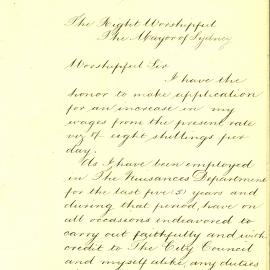 The Right Worshipful
The Mayor of Sydney
Worshipful Sir
I have the
honor to make application
for an increase in my
wages from the present rate
viz of eight shillings per
day.
As I have been employed
in The Nuisances Department
for the last five (5) years and
during that period, have on
all occasions endeavored to
carry out faithfully and with
credit to The City Council
and myself alike, any duties